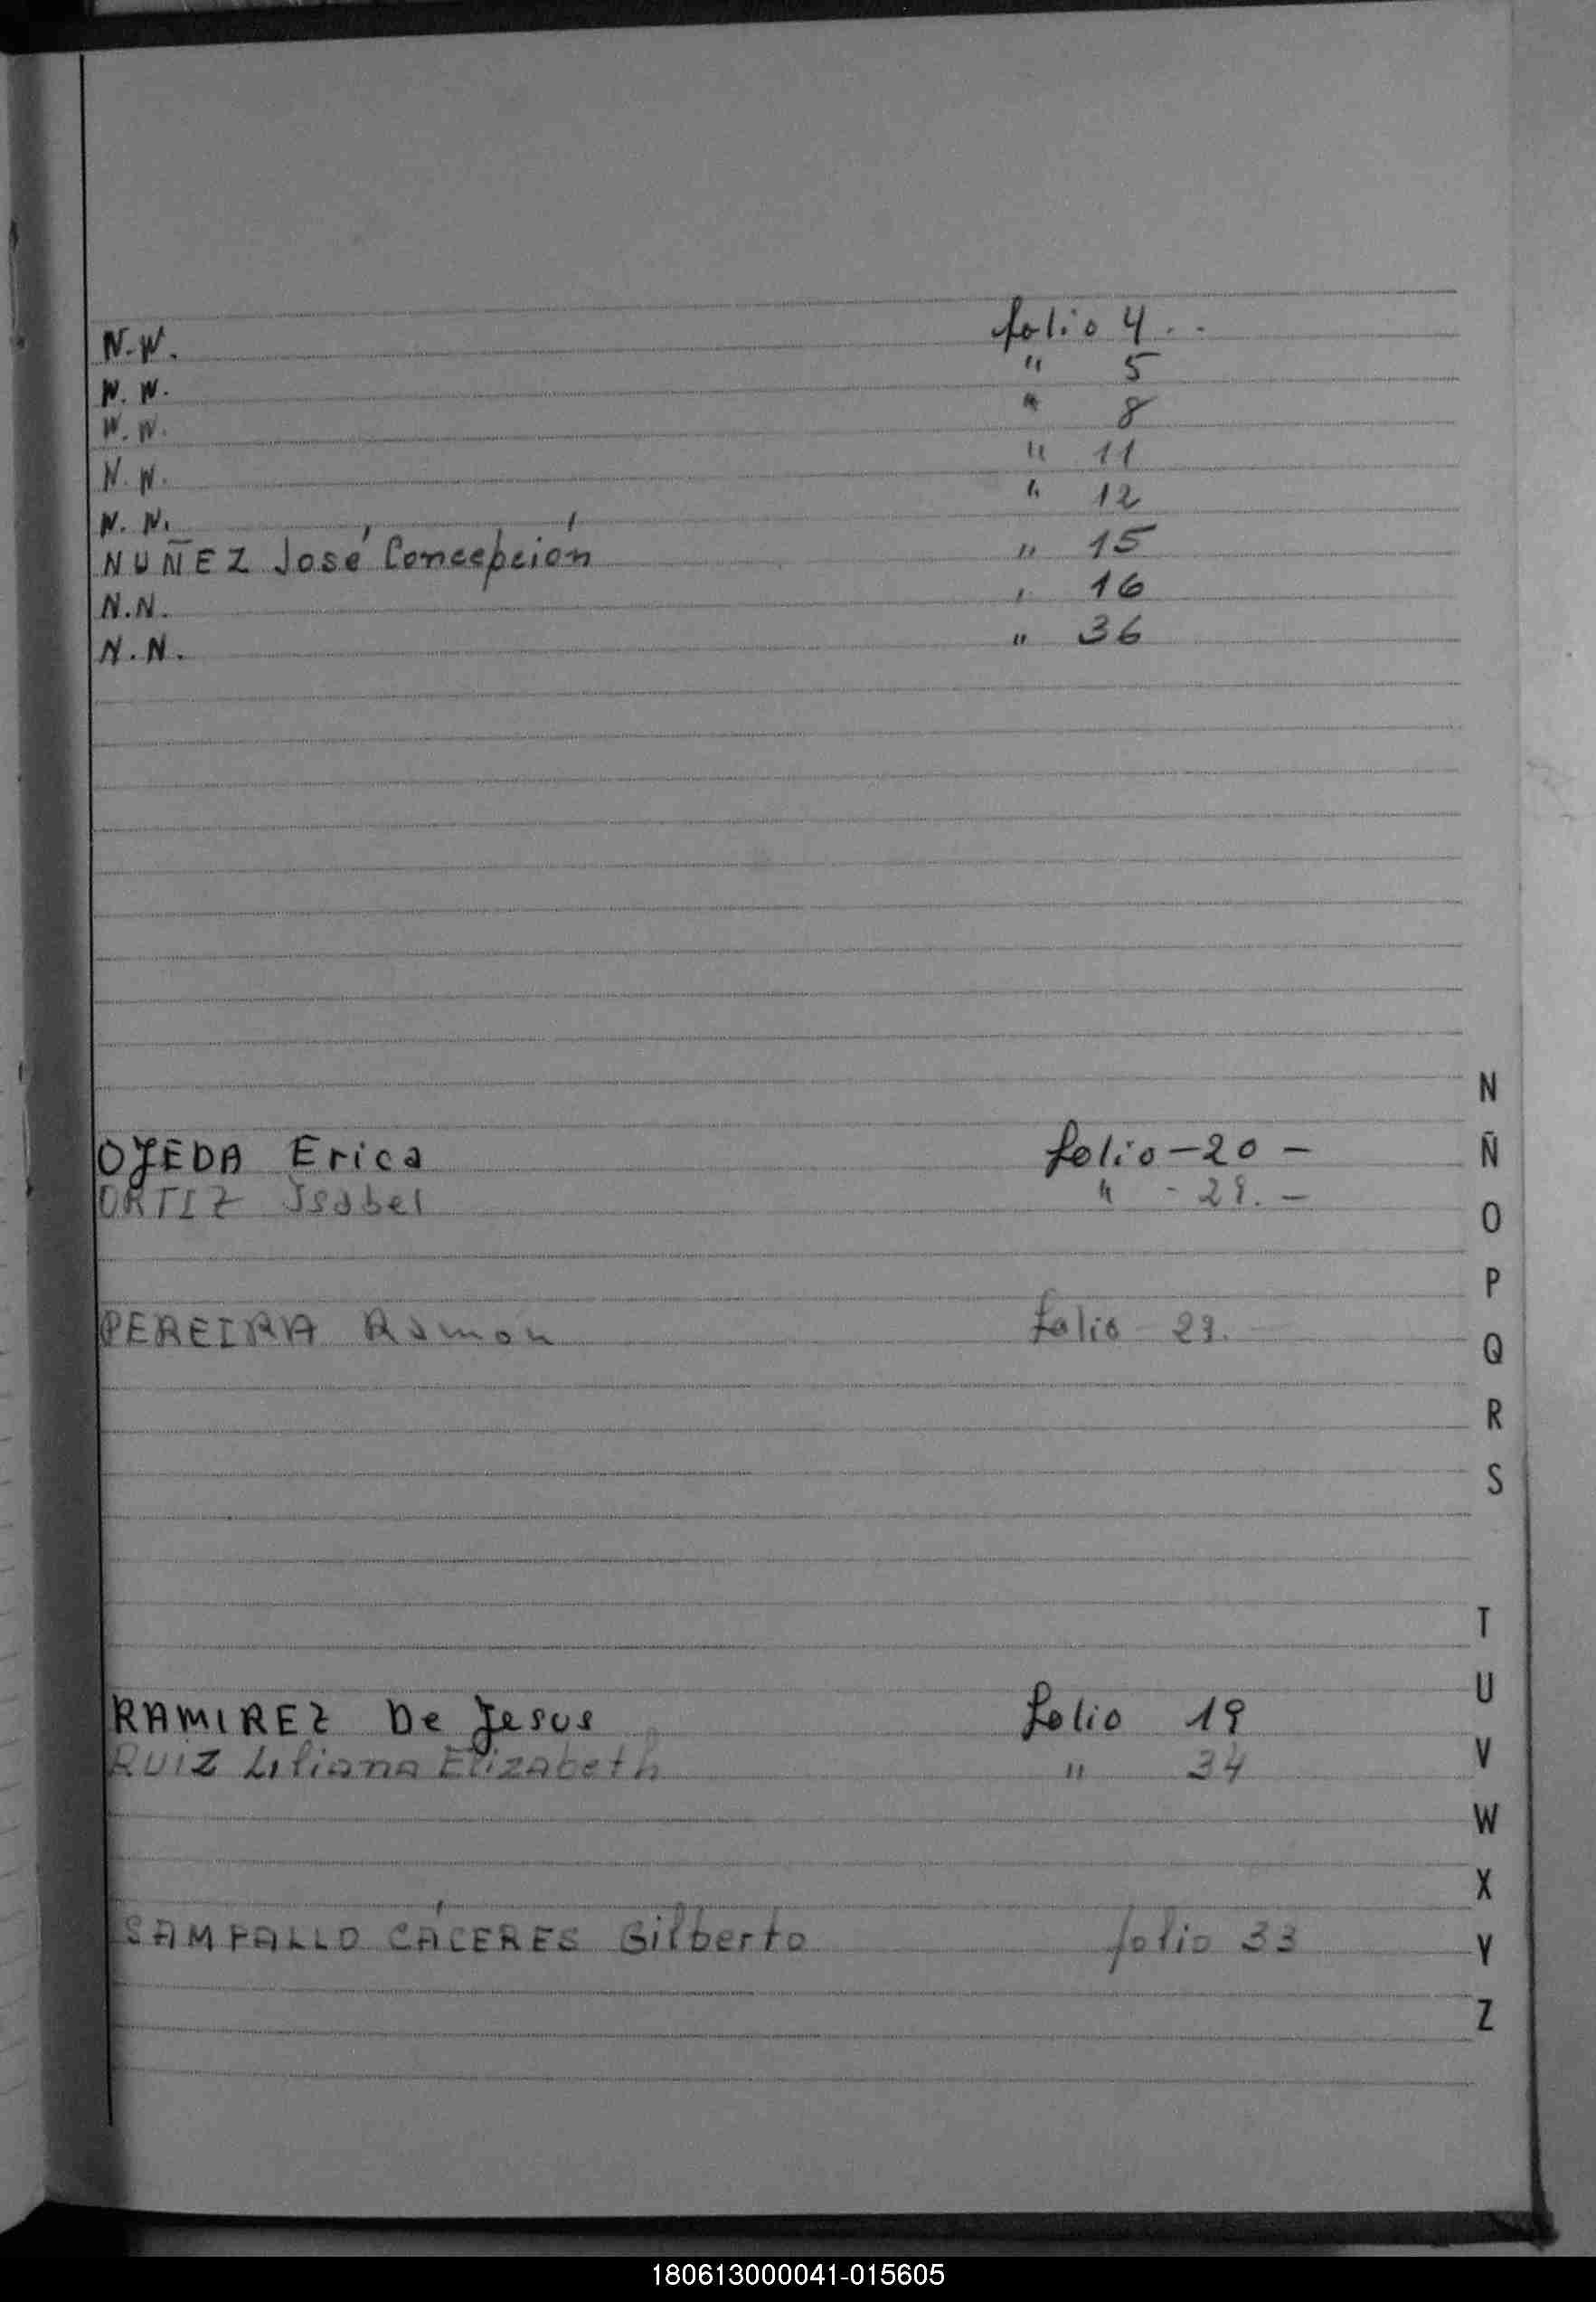 N.N. folio 4 . .
N.N. " 5
N.N. " 8
N.N. " 11
N.N. " 12
NUÑEZ José Concepción " 15
N.N. " 16
N.N. " 36
OJEDA Erica folio - 20 -
ORTIZ Isabel " - 29. -
PEREIRA Ramon folio - 29. -
RAMIREZ De Jesus folio 19
RUIZ Liliana Elizabeth " 34
SAMFALLO CÁCERES Gilberto folio 33
N
Ñ
O
P
Q
R
S
T
U
V
W
X
Y
Z
180613000041-015605